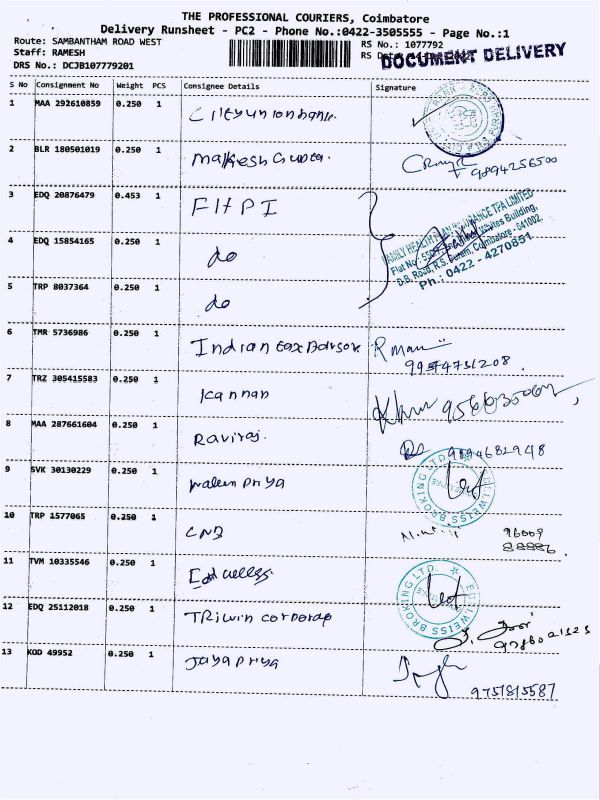 THE PROFESSIONAL COURIERS, Coimbatore
Delivery Runsheet - PC2 - Phone No.:0422-3505555 - Page No.:1
Route: SAMBANTHAM ROAD WEST
RS No.: 1077792
Staff: RAMESH
RS
DOCUMENT DELIVERY
DRS No.: DCJB107779201
S No Consignment No Weight PCS Consignee Details Signature
1 MAA 292610859 0.250 1 Cityunionbank.
2 BLR 180501019 0.250 1 Mahesh Gupta. 9894256500
3 EDQ 20876479 0.453 1 FHPI
FAMILY HEALTH PLAN INSURANCE TPA LIMITED
Flat No. Building,
D.B. Road, R.S. Puram, Coimbatore - 641002
Ph.: 0422 - 4270851
4 EDQ 15854165 0.250 1 do
5 TRP 8037364 0.250 1 do
6 TMR 5736986 0.250 1 Indian tax Advisor R man
7 TRZ 305415583 0.250 1 Kannan
8 MAA 287661604 0.250 1 Raviraj.
9 SVK 30130229 0.250 1 Priya
EDELWEISS BROKING LTD.
10 TRP 1577065 0.250 1 CNB
11 TVM 10335546 0.250 1 Edelweiss
EDELWEISS BROKING LTD.
12 EDQ 25112018 0.250 1 Triwin corporap
13 KOD 49952 0.250 1 Jayapriya 9751815587